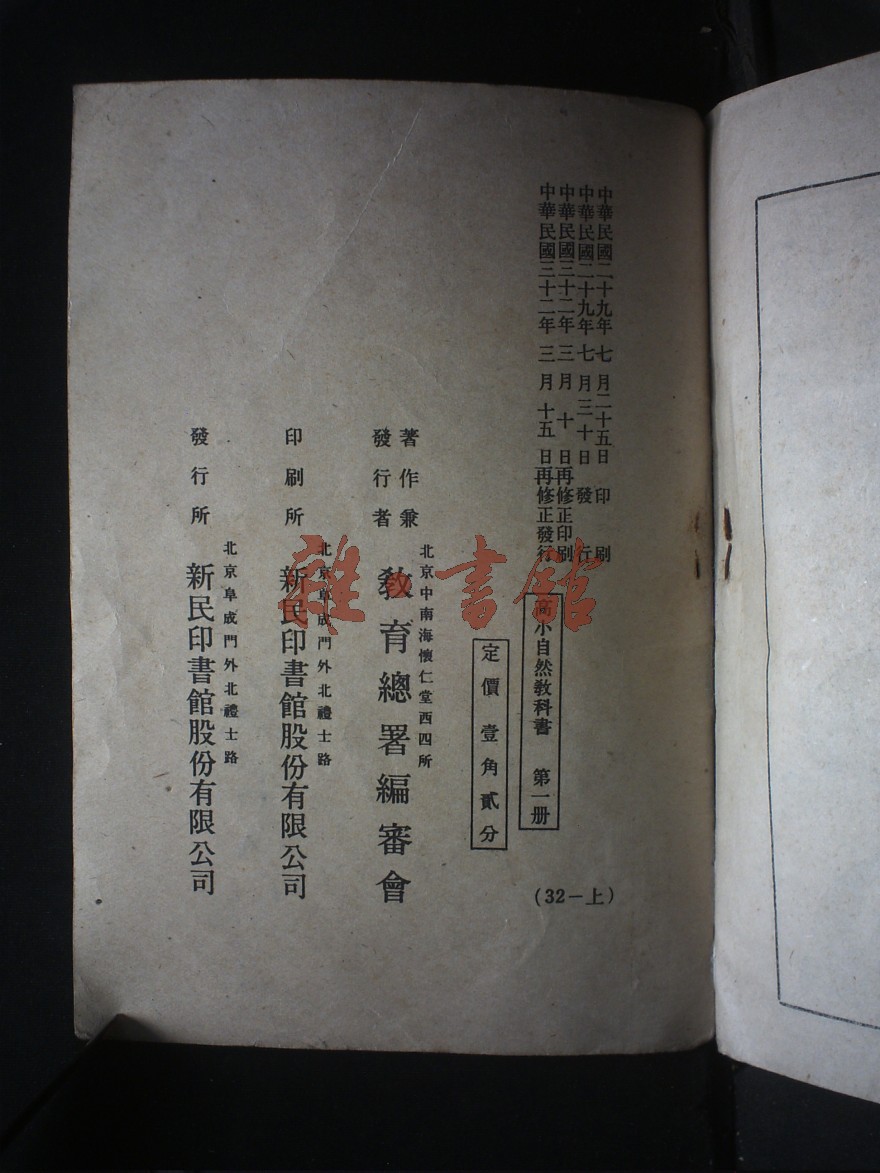 中華民國二十九年七月二十五日印刷
中華民國二十九年七月三十日發行
中華民國三十二年三月十日再修正印刷
中華民國三十二年三月十五日再修正發行
高小自然教科書 第一册
(32－上)
定價壹角貳分
著作兼
發行者
北京中南海懷仁堂西四所
教育總署編審會
印刷所
北京阜成門外北禮士路
新民印書館股份有限公司
發行所
北京阜成門外北禮士路
新民印書館股份有限公司
雜·書館